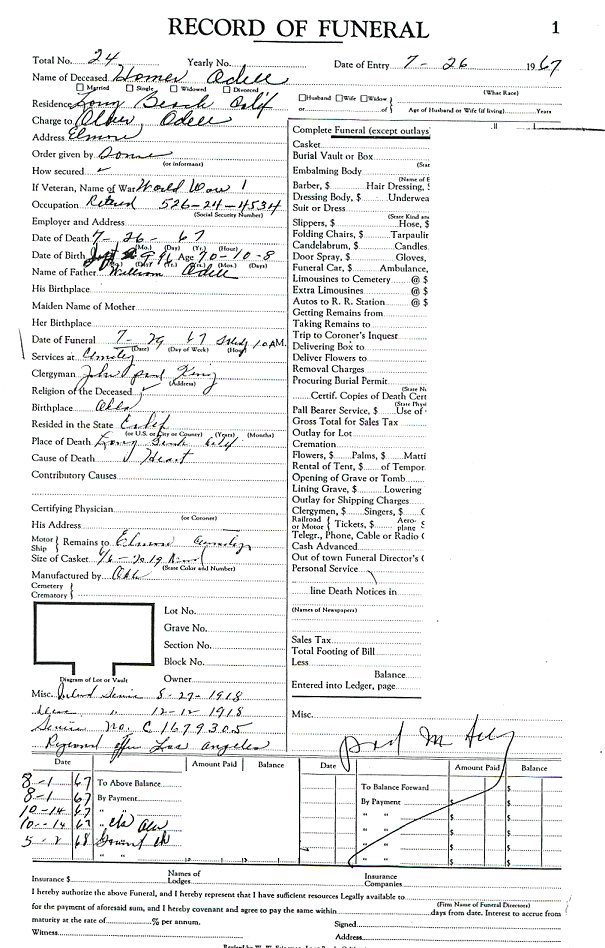 RECORD OF FUNERAL
1
Total No. 24 Yearly No. Date of Entry 7 - 26 1967
Name of Deceased Homer Odell
Married Single Widowed Divorced
(What Race)
Residence Long Beach Calif
Husband Wife Widow
or of Age of Husband or Wife (if living) Years
Charge to Odell
Address Elmore
Order given by
(or informant)
How secured
If Veteran, Name of War World War 1
Occupation Retired 526-24-4534
(Social Security Number)
Employer and Address
Date of Death 7 - 26 - 67
(Mo.) (Day) (Yr.) (Hour)
Date of Birth Age 70-10-8
(Yrs.) (Mos.) (Days)
Name of Father William Odell
His Birthplace
Maiden Name of Mother
Her Birthplace
Date of Funeral 7- 29 67 10 AM.
(Date) (Day of Week) (Hour)
Services at
Clergyman John
(Address)
Religion of the Deceased
Birthplace
Resided in the State Calif
(or U.S. or City or County) (Years) (Months)
Place of Death Long Beach Calif
Cause of Death Heart
Contributory Causes
Certifying Physician
(or Coroner)
His Address
Motor Ship Remains to Elmore
Size of Casket
(State Color and Number)
Manufactured by
Cemetery
Crematory
Lot No.
Grave No.
Section No.
Block No.
Owner
Diagram of Lot or Vault
Misc. Service 5-27-1918
" 12-12-1918
Service No. C 1679305
Regional office Los Angeles
Complete Funeral (except outlays)
Casket
Burial Vault or Box
(Stat
Embalming Body
(Name of E
Barber, $ Hair Dressing, $
Dressing Body, $ Underwea
Suit or Dress
(State Kind an
Slippers, $ Hose, $
Folding Chairs, $ Tarpaulin
Candelabrum, $ Candles,
Door Spray, $ Gloves,
Funeral Car, $ Ambulance,
Limousines to Cemetery @ $
Extra Limousines @ $
Autos to R. R. Station @ $
Getting Remains from
Taking Remains to
Trip to Coroner's Inquest
Delivering Box to
Deliver Flowers to
Removal Charges
Procuring Burial Permit
(State N
Certif. Copies of Death Cert
(State Physi
Pall Bearer Service, $ Use of
Gross Total for Sales Tax
Outlay for Lot
Cremation
Flowers, $ Palms, $ Matti
Rental of Tent, $ of Tempor
Opening of Grave or Tomb
Lining Grave, $ Lowering
Outlay for Shipping Charges
Clergymen, $ Singers, $
Railroad or Motor Tickets, $ Aeroplane $
Telegr., Phone, Cable or Radio
Cash Advanced
Out of town Funeral Director's
Personal Service
line Death Notices in
(Names of Newspapers)
Sales Tax
Total Footing of Bill
Less
Balance
Entered into Ledger, page
Misc.
Date Amount Paid Balance Date Amount Paid Balance
8-1 67 To Above Balance To Balance Forward $
8-1 67 By Payment By Payment $ $
10-14 67 " " " " $ $
10-14 67 " " " $ $
5- 2 68 " " $ $
" " " " $ $
Insurance $ Names of Lodges Insurance Companies
I hereby authorize the above Funeral, and I hereby represent that I have sufficient resources Legally available to
(Firm Name of Funeral Directors)
for the payment of aforesaid sum, and I hereby covenant and agree to pay the same within days from date. Interest to accrue from
maturity at the rate of % per annum. Signed
Witness Address